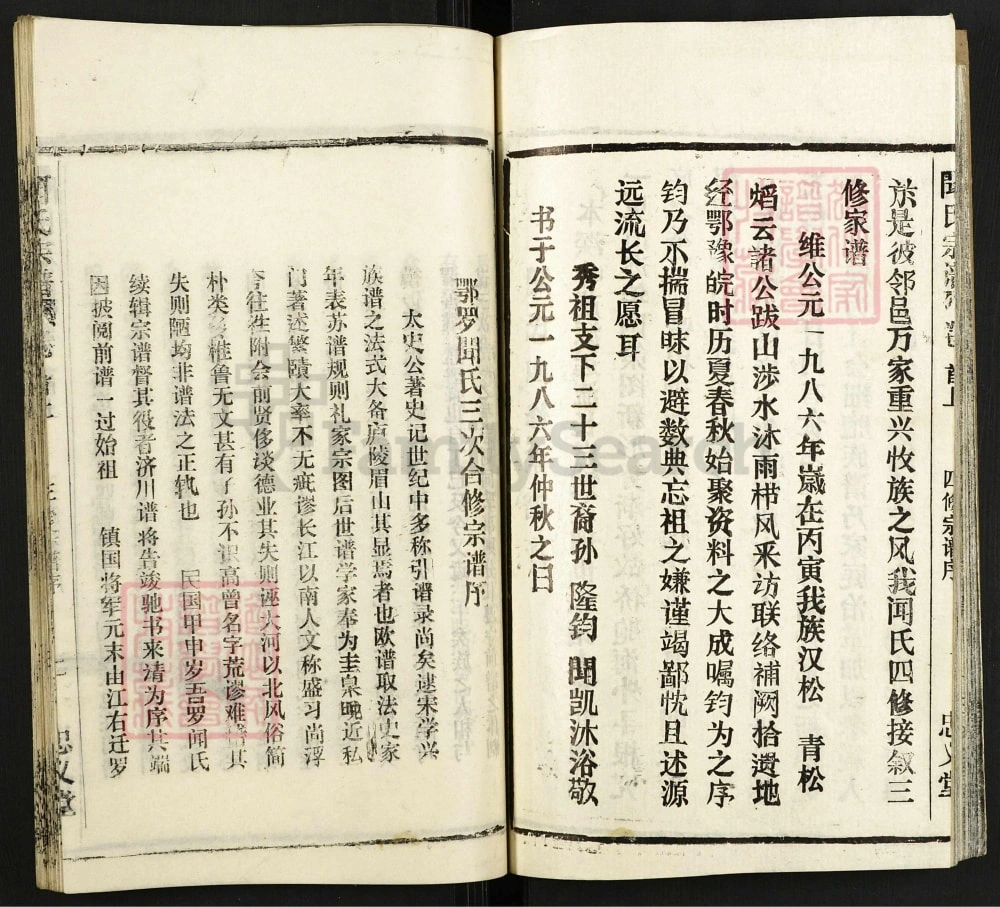 於是彼邻邑万家重兴牧族之风我闻氏四修接叙三
修家谱
维公元一九八六年嵗在丙寅我族汉松 青松
焰云諸公跋山涉水沐雨栉风采访联络補阙拾遗地
经鄂豫皖时历夏春秋始聚资料之大成嘱钧为之序
钧乃不揣冒昧以避数典忘祖之嫌谨竭鄙忱且述源
远流长之愿耳
秀祖支下二十三世裔孙 隆钧 聞凯沐浴敬
书于公元一九八六年仲秋之日
四修宗谱序
忠义堂
鄂罗聞氏三次合修宗谱序
太史公著史记世纪中多称引谱录尚矣逮宋学兴
族谱之法式大备庐陵眉山其显焉者也欧谱取法史家
年表苏谱规则礼家宗图后世谱学家奉为圭臬晚近私
门著述繁赜大率不无疵谬长江以南人文称盛习尚浮
夸往往附会前贤侈谈德业其失则诬大河以北风俗简
朴类多椎鲁无文甚有子孙不识高曾名字荒谬难稽其
失则陋均非谱法之正轨也 民国甲申岁吾罗闻氏
续辑宗谱督其役者济川谱将告竣驰书来请为序其端
因披阅前谱一过始祖 镇国将军元末由江右迁罗
忠义堂
FamilySearch